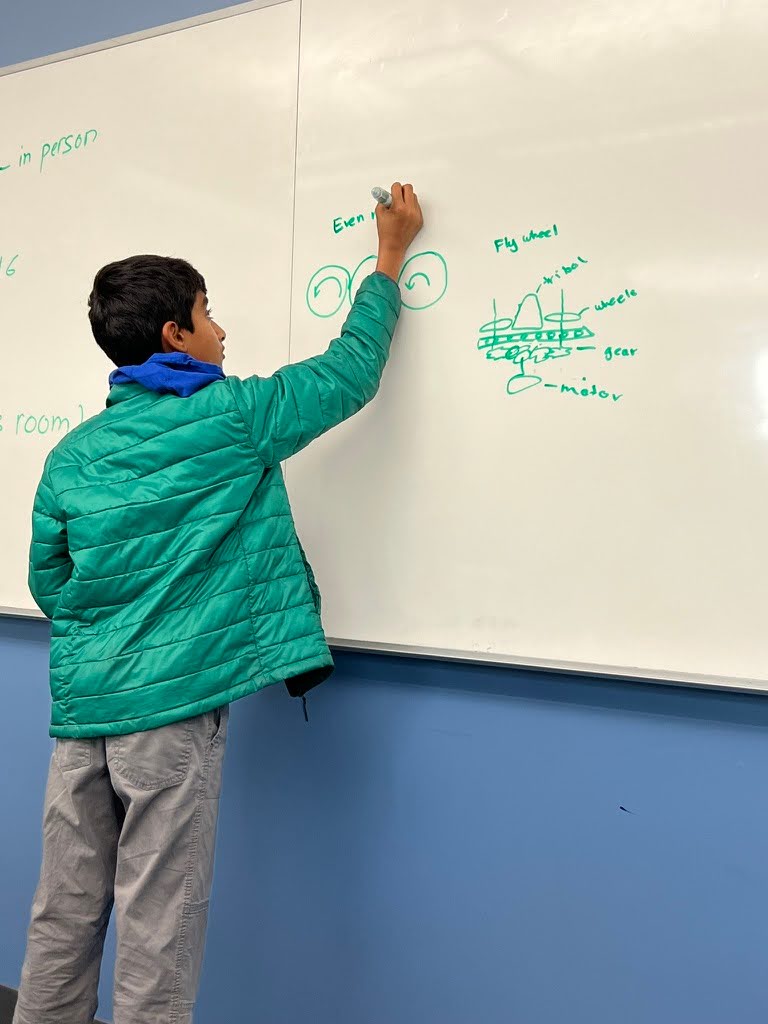 in person
16
room
Even
Fly wheel
wheels
gear
motor